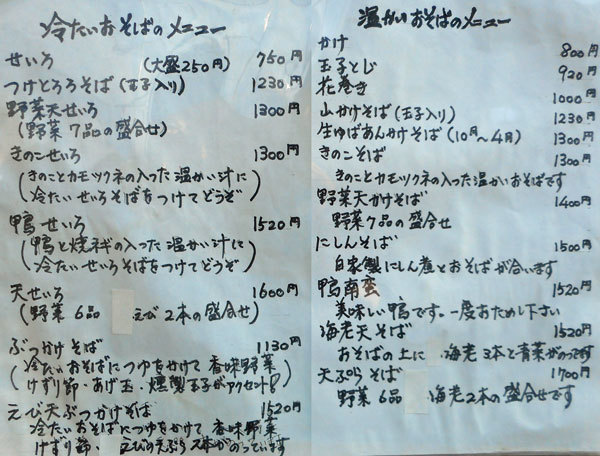 冷たいおそばのメニュー
せいろ (大盛250円) 750円
つけとろろそば (玉子入り) 1230円
野菜天せいろ 1300円
(野菜7品の盛合せ)
きのこせいろ 1300円
(きのことカモツクネの入った温かい汁に
冷たいせいろそばをつけてどうぞ)
鴨せいろ 1520円
(鴨と焼ネギの入った温かい汁に
冷たいせいろそばをつけてどうぞ)
天せいろ 1600円
(野菜6品 えび2本の盛合せ)
ぶっかけそば 1130円
(冷たいおそばにつゆをかけて 香味野菜
けずり節・あげ玉・燻製玉子がアクセント!)
えび天ぶっかけそば 1520円
冷たいおそばにつゆをかけて 香味野菜
けずり節・ えびの天ぷら2本がのっています
温かいおそばのメニュー
かけ 800円
玉子とじ 920円
花巻き 1000円
山かけそば (玉子入り) 1230円
生ゆばあんかけそば (10月〜4月) 1300円
きのこそば 1300円
きのことカモツクネの入った温かいおそばです
野菜天かけそば 1400円
野菜7品の盛合せ
にしんそば 1500円
自家製にしん煮とおそばが合います
鴨南蛮 1520円
美味しい鴨です。一度おためし下さい
海老天そば 1520円
おそばの上に 海老3本と青菜がのってます
天ぷらそば 1700円
野菜6品 海老2本の盛合せです